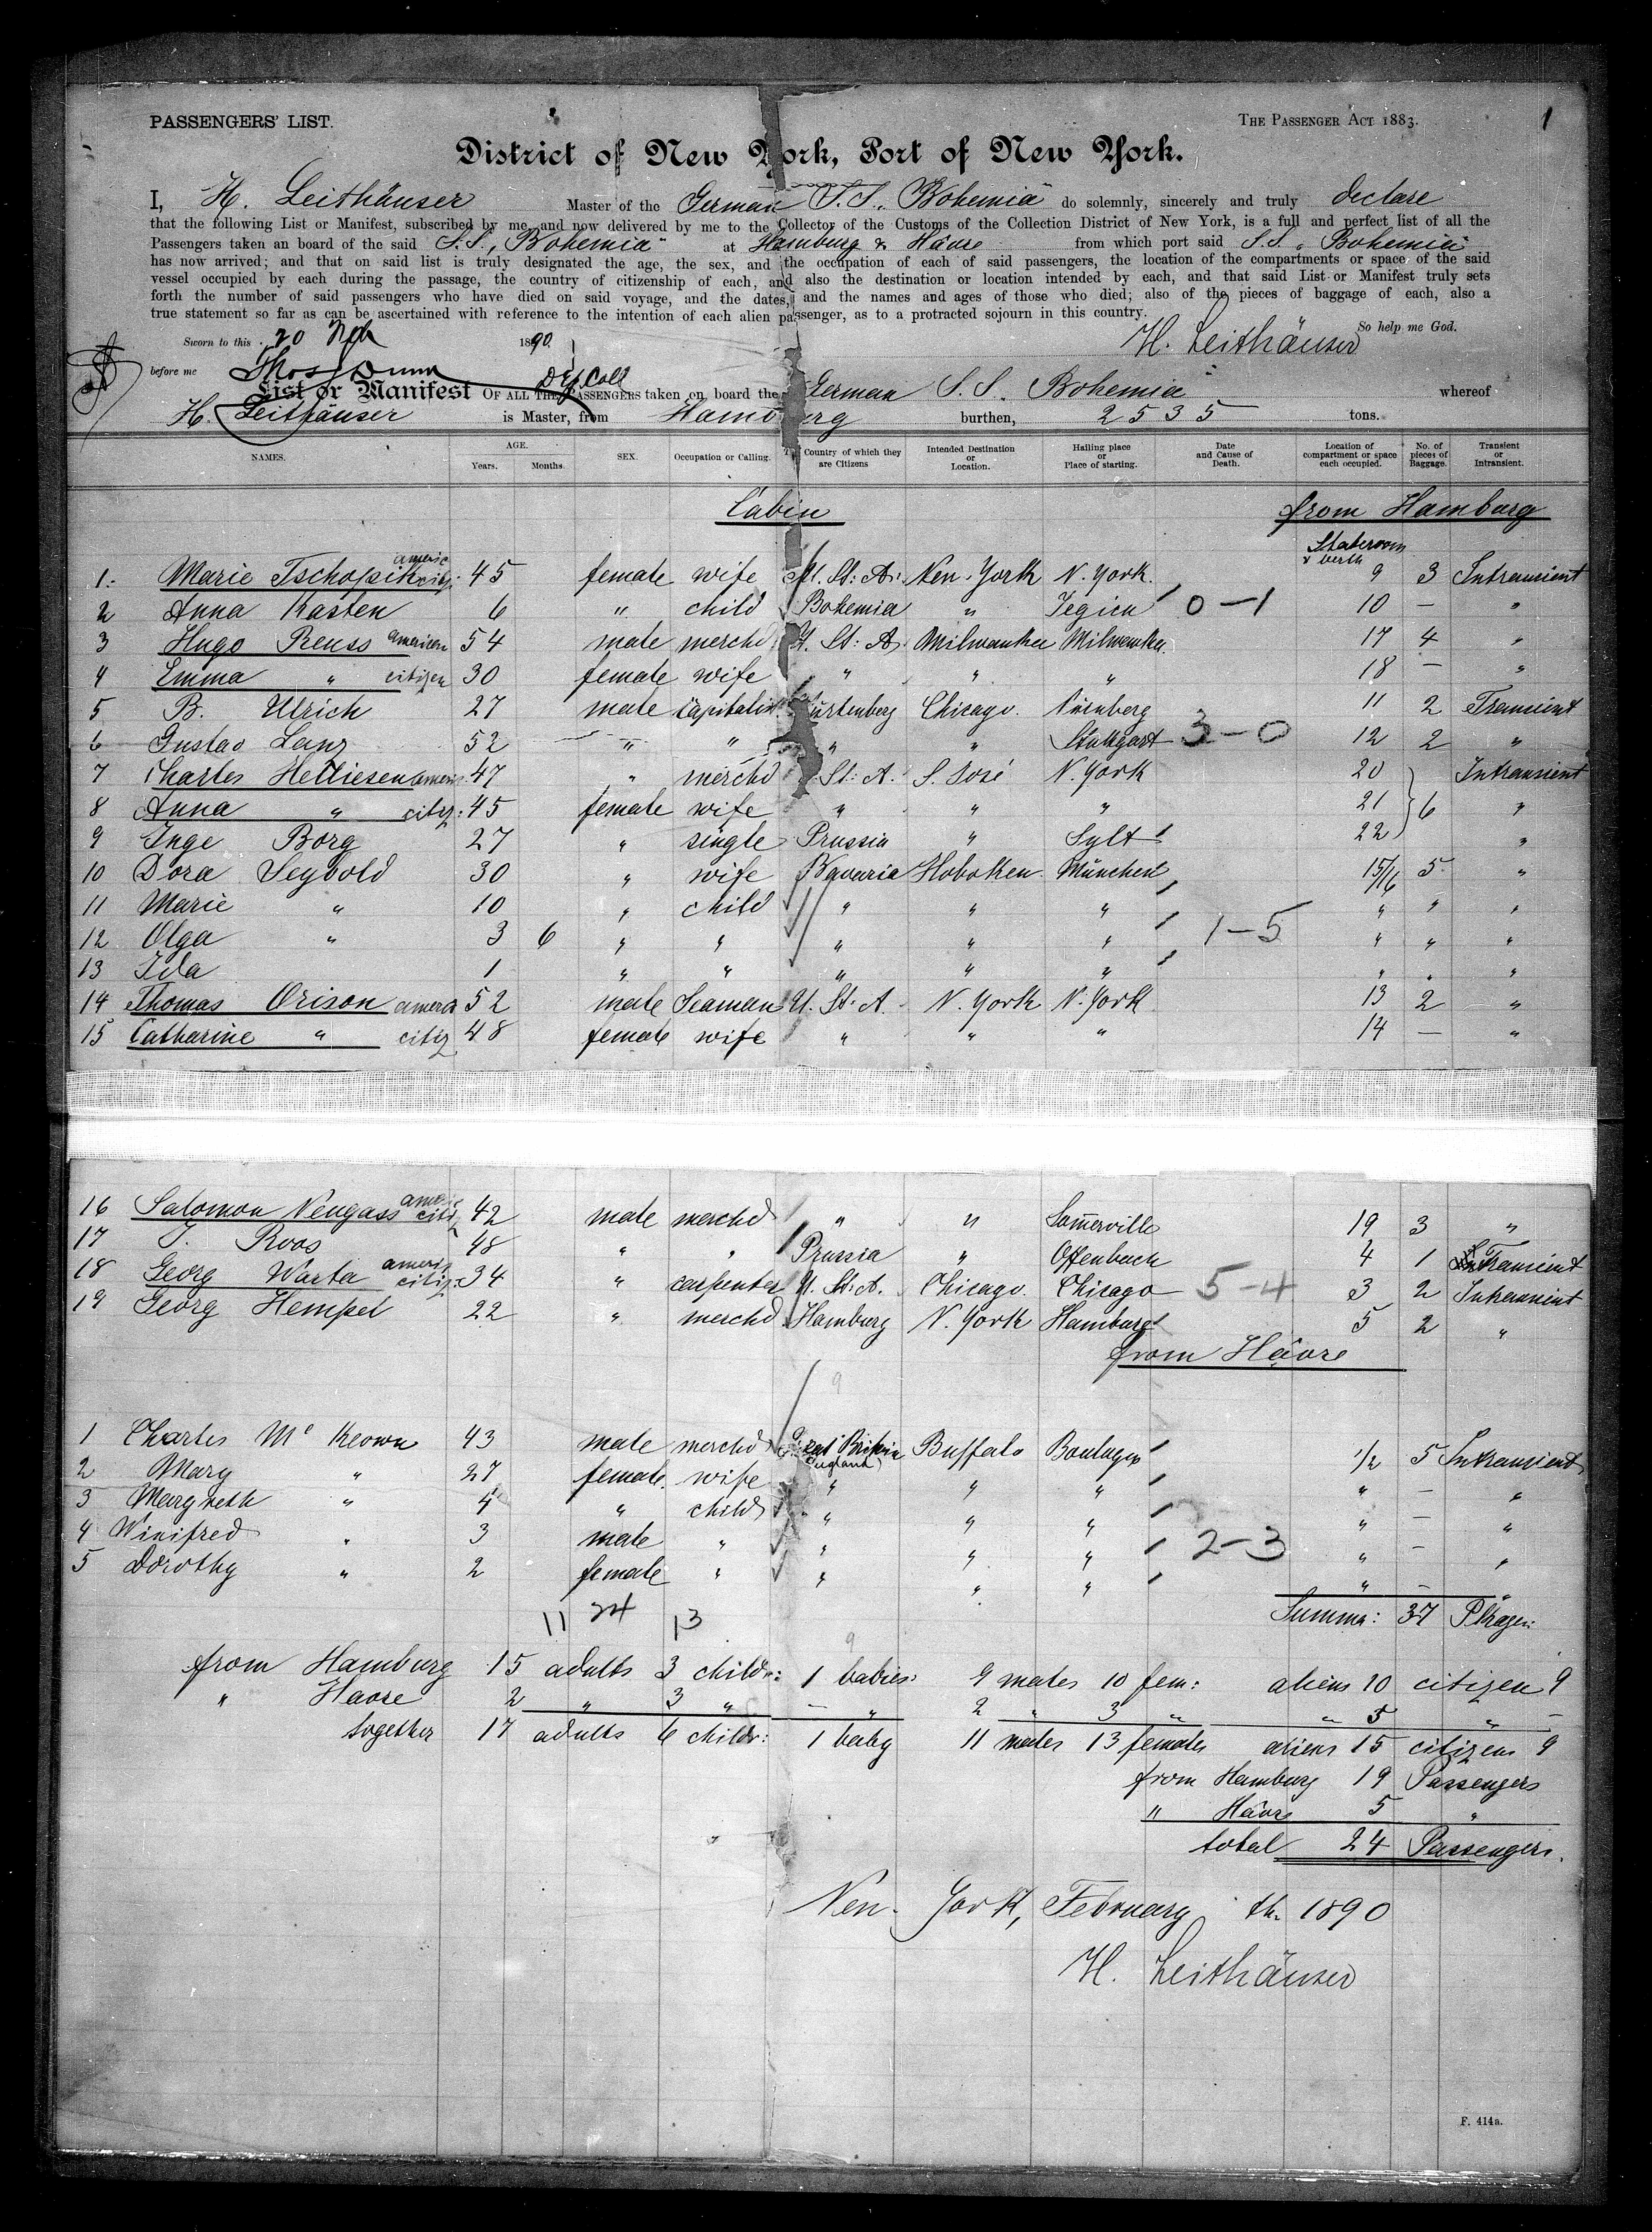 PASSENGERS' LIST.
THE PASSENGER ACT 1883.
1
District of New York, Port of New York.
I, H. Leithäuser Master of the German S.S. „Bohemia" do solemnly, sincerely and truly declare
that the following List or Manifest, subscribed by me, and now delivered by me to the Collector of the Customs of the Collection District of New York, is a full and perfect list of all the
Passengers taken an board of the said S.S. „Bohemia" at Hamburg & Hâvre from which port said S.S. „Bohemia"
has now arrived; and that on said list is truly designated the age, the sex, and the occupation of each of said passengers, the location of the compartments or space of the said
vessel occupied by each during the passage, the country of citizenship of each, and also the destination or location intended by each, and that said List or Manifest truly sets
forth the number of said passengers who have died on said voyage, and the dates, and the names and ages of those who died; also of the pieces of baggage of each, also a
true statement so far as can be ascertained with reference to the intention of each alien passenger, as to a protracted sojourn in this country.
So help me God.
Sworn to this 20 Feb 1890.
H. Leithäuser
before me Thos Dunn Dep Coll
List or Manifest OF ALL THE PASSENGERS taken on board the German S.S. „Bohemia" whereof
H. Leithäuser is Master, from Hamburg burthen, 2535 tons.
NAMES. AGE. Years. Months. SEX. Occupation or Calling. Country of which they are Citizens Intended Destination or Location. Hailing place or Place of starting. Date and Cause of Death. Location of compartment or space each occupied. No. of pieces of Baggage. Transient or Intransient.
Cabin from Hamburg
Stateroom & berth
1. Marie Tschopik americ citiz. 45 female wife U. St: A. New-York N. York. 9 3 Intransient
2 Anna Kasten 6 " child Bohemia " Jegien 0-1 10 — "
3 Hugo Reuss american 54 male merchd U. St: A. Milwaukee Milwaukee. 17 4 "
4 Emma " citizen 30 female wife " " " 18 — "
5 B. Ulrich 27 male Capitalist Würtenberg Chicago. Nürnberg 11 2 Transient
6 Gustav Lanz 52 " " " " Stuttgart 3-0 12 2 "
7 Charles Hetliesen americ 47 " merchd St: A. S. José N. York 20 Intransient
8 Anna " citiz: 45 female wife " " " 21 6 "
9 Inge Borg 27 " single Prussia " Sylt 22 "
10 Dora Seybold 30 " wife Bavaria Hoboken München 15/16 5 "
11 Marie " 10 " child " " " " " "
12 Olga " 3 6 " " " " " 1-5 " " "
13 Ida 1 " " " " " " " "
14 Thomas Orison americ 52 male Seaman U. St. A. N. York N. York 13 2 "
15 Catharine " citiz 48 female wife " " " 14 — "
16 Salomon Neugass americ citiz 42 male merchd " " Somerville 19 3 "
17 J. Roos 48 " " Prussia " Offenbach 4 1 Transient
18 Georg Warta americ citiz 34 " carpenter U. St. A. Chicago. Chicago 5-4 3 2 Intransient
19 Georg Hempel 22 " merchd Hamburg N. York Hamburg 5 2 "
from Hâvre
9
1 Charles Mc Keown 43 male merchd Great Britain (England) Buffalo Boulogne 1/2 5 Intransient
2 Mary " 27 female. wife " " " " — "
3 Margreth " 4 " child " " " " — "
4 Winifred " 3 male " " " " 2-3 " — "
5 Dorothy " 2 female " " " " " — "
11 24 13
Summa: 37 Pkage:
9
from Hamburg 15 adults 3 childr: 1 babies: 9 males 10 fem: aliens 10 citizen 9
" Havre 2 " 3 " — " 2 " 3 " " 5 " —
together 17 adults 6 childr: 1 baby 11 males 13 females aliens 15 citizens 9
from Hamburg 19 Passengers
" Hâvre 5 "
total 24 Passengers.
New-York, February th 1890
H. Leithäuser
F. 414a.